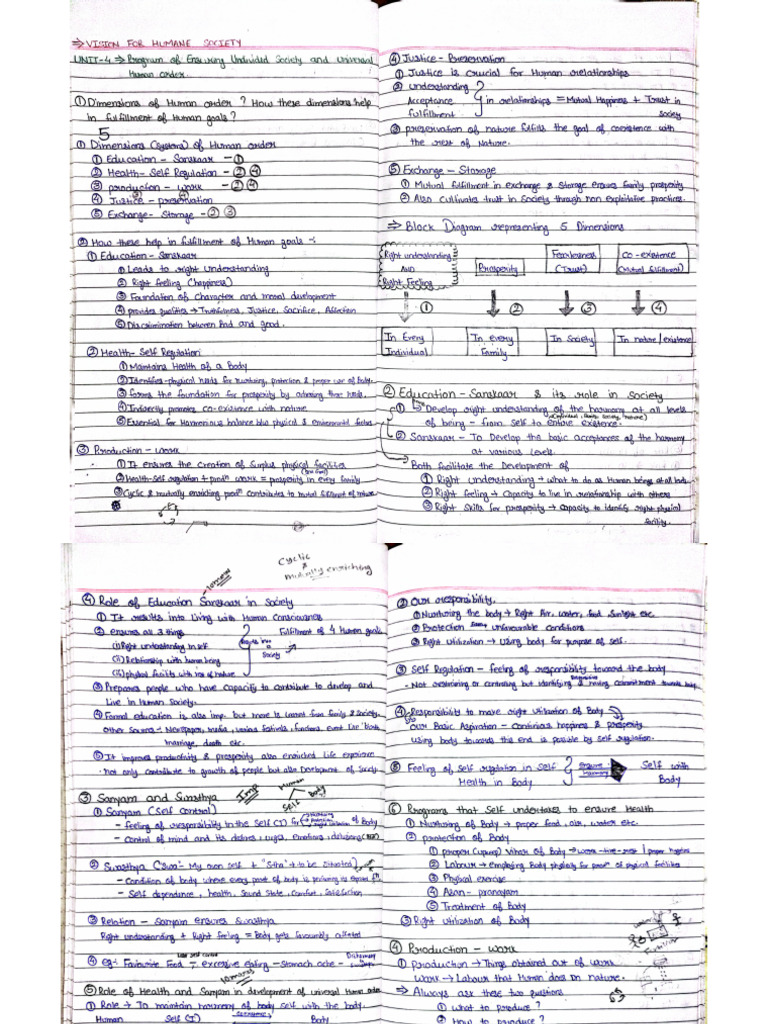 ⇒ VISION FOR HUMANE SOCIETY
UNIT-4 ⇒ Program of Ensuring Undivided Society and Universal
Human order.
① Dimensions of Human order ? How these dimensions help
in fulfillment of Human goals ?
5
① Dimensions (systems) of Human order
① Education - Sanskaar - ①
② Health - Self Regulation - ② ④
③ production - work - ② ④
④ Justice - preservation
③ ④
⑤ Exchange - Storage - ② ③
② How these help in fulfillment of Human goals -:
① Education - Sanskaar
① Leads to right understanding
② Right feeling (happiness)
③ Foundation of character and moral development
④ provides qualities → Truthfulness, Justice, Sacrifice, Affection
⑤ Discrimination between Bad and good.
② Health - Self Regulation
① Maintains Health of a Body
② Identifies physical needs for nurturing, protection & proper use of Body.
③ forms the foundation for prosperity by adressing these needs.
④ Indirectly promotes co-existence with nature
⑤ Essential for Harmonious balance b/w physical & environmental factors
③ Production - work
① It ensures the creation of Surplus physical facilities
② Health-self regulation + prodn work = prosperity in every family
③ Cyclic & mutually enriching prodn contributes to mutual fulfilment of nature
④ Justice - Preservation
① Justice is crucial for Human relationships
② understanding
Acceptance } in relationships = Mutual Happiness + Trust in
fulfillment society
③ preservation of nature fulfills the goal of coexistence with
the rest of Nature.
⑤ Exchange - Storage
① Mutual fulfillment in exchange & Storage ensures family prosperity
② Also cultivates trust in Society through non exploitative practices.
⇒ Block Diagram representing 5 Dimensions
Right understanding
AND
Right Feeling
Prosperity
Fearlessness
(Trust)
Co-existence
(Mutual fulfillment)
① ② ③ ④
In Every
Individual
In every
Family
In Society
In nature/existence
② Education - Sanskaar & its role in Society
① → Develop right understanding of the harmony at all levels
of being - from Self to entire existence.
② Sanskaar - To Develop the basic acceptances of the harmony
at various levels.
Both facilitate the Development of
① Right understanding → what to do as Human beings at all levels
② Right feeling → Capacity to live in relationship with others
③ Right Skills for prosperity → capacity to identify right physical
facility.
cyclic
&
mutually enriching
④ Role of Education Sanskaar in Society
① It results into Living with Human Consciousness
② ensures all 3 things Fulfillment of 4 Human goals
(i) Right understanding in self
Society
(ii) Relationship with human being
(iii) physical facility with rest of nature
③ Prepares people who have capacity to contribute to develop and
Live in Human Society.
④ Formal education is also imp. but more is learnt from family & Society.
other Source - Newspaper, media, various festivals, functions, event like birth
marriage, death etc.
⑤ It improves productivity & prosperity also enriched life experience
not only contribute to growth of people but also Development of Society
③ Sanyam and Swasthya
Imp
Human
Self Body
① Sanyam (Self Control)
- Feeling of responsibility in the Self (I) for of Body
- Control of mind and its desires, urges, emotions, delusions
② Swasthya ('Swa' - My own self + "Stha" → to be Situated)
- Condition of body where every part of body is performing its expected fn
- Self dependence, health, sound State, Comfort, Satisfaction
③ Relation - Sanyam ensures Swasthya
Right understanding + Right feeling = Body gets favourably affected
④ eg - Favourite Food → excessive eating - Stomach ache -
⑤ Role of Health and Sanyam in development of universal Human order
① Role → To maintain harmony of body self with the body.
Human Self (I) Body
② our responsibility.
① Nurturing the body → Right Air, water, food, Sunlight etc.
② Protection from unfavourable conditions
③ Right Utilization → Using body for purpose of self.
③ Self Regulation - feeling of responsibility toward the body
- Not restraining or controlling but identifying & making commitment towards body
④ Responsibility to make right utilization of Body
our Basic Aspiration - Continuous happiness & prosperity
using body towards this end is possible by self regulation.
⑤ Feeling of self regulation in self } Ensure Self with
Health in Body Harmony Body
⑥ Programs that Self undertakes to ensure Health
① Nurturing of Body → proper food, air, water etc.
② protection of Body
① proper (upying) vihar of Body →
② Labour → employing Body physically for prodn of physical facilities
③ Physical exercise
④ Asan - pranayam
⑤ Treatment of Body
③ Right utilization of Body
④ Production - work
① production → Things obtained out of work
work → Labour that Human does on nature.
⇒ Always ask these two questions
① What to produce ?
② How to produce ?